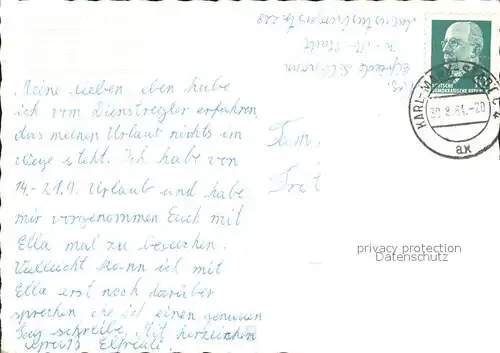 Meine Lieben eben habe
ich vom Dienstregler erfahren,
das meinen Urlaub nichts im
Wege steht. Ich habe von
14.-21.9. Urlaub und habe
mir vorgenommen Euch mit
Ella mal zu besuchen.
Vielleicht kann ich mit
Ella erst noch darüber
sprechen ehe ich einen genauen
Tag schreibe. Mit herzlichen
Elfriede
Fam.
DEUTSCHE
DEMOKRATISCHE REPUBLIK
KARL-MARX-STADT
30.8.61.-20
ax
privacy protection
Datenschutz